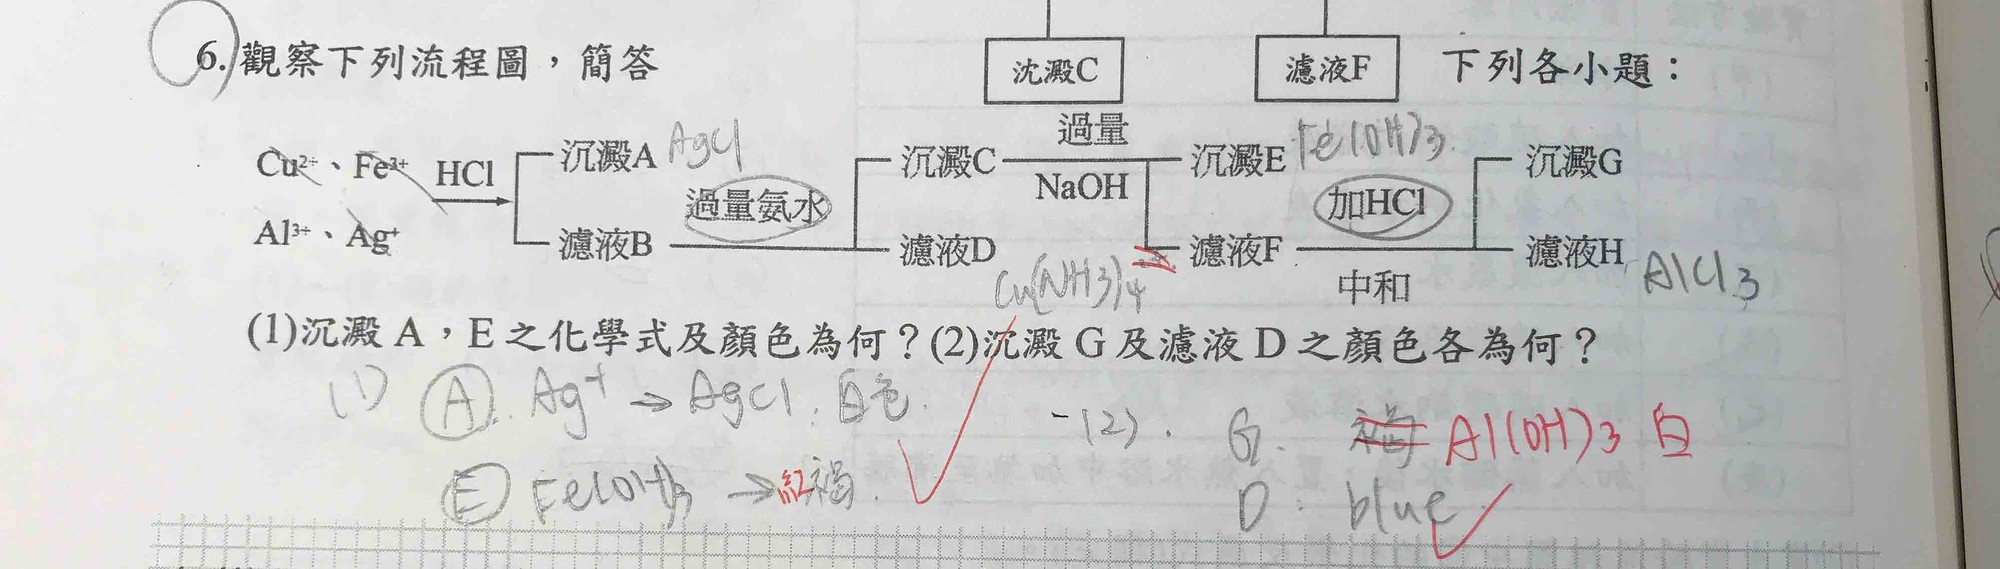 沈澱C
濾液F
6.觀察下列流程圖，簡答
下列各小題：
Cu²⁺、Fe³⁺
Al³⁺、Ag⁺
HCl
沉澱A AgCl
濾液B
過量氨水
沉澱C
濾液D
Cu(NH3)4
過量
NaOH
沉澱E Fe(OH)3
濾液F
加HCl
中和
沉澱G
濾液H AlCl3
(1)沉澱 A，E 之化學式及顏色為何？(2)沉澱 G 及濾液 D 之顏色各為何？
(1) A. Ag+ → AgCl. 白色.
E Fe(OH)3 → 紅褐.
(2). G. 褐 Al(OH)3 白
D: blue